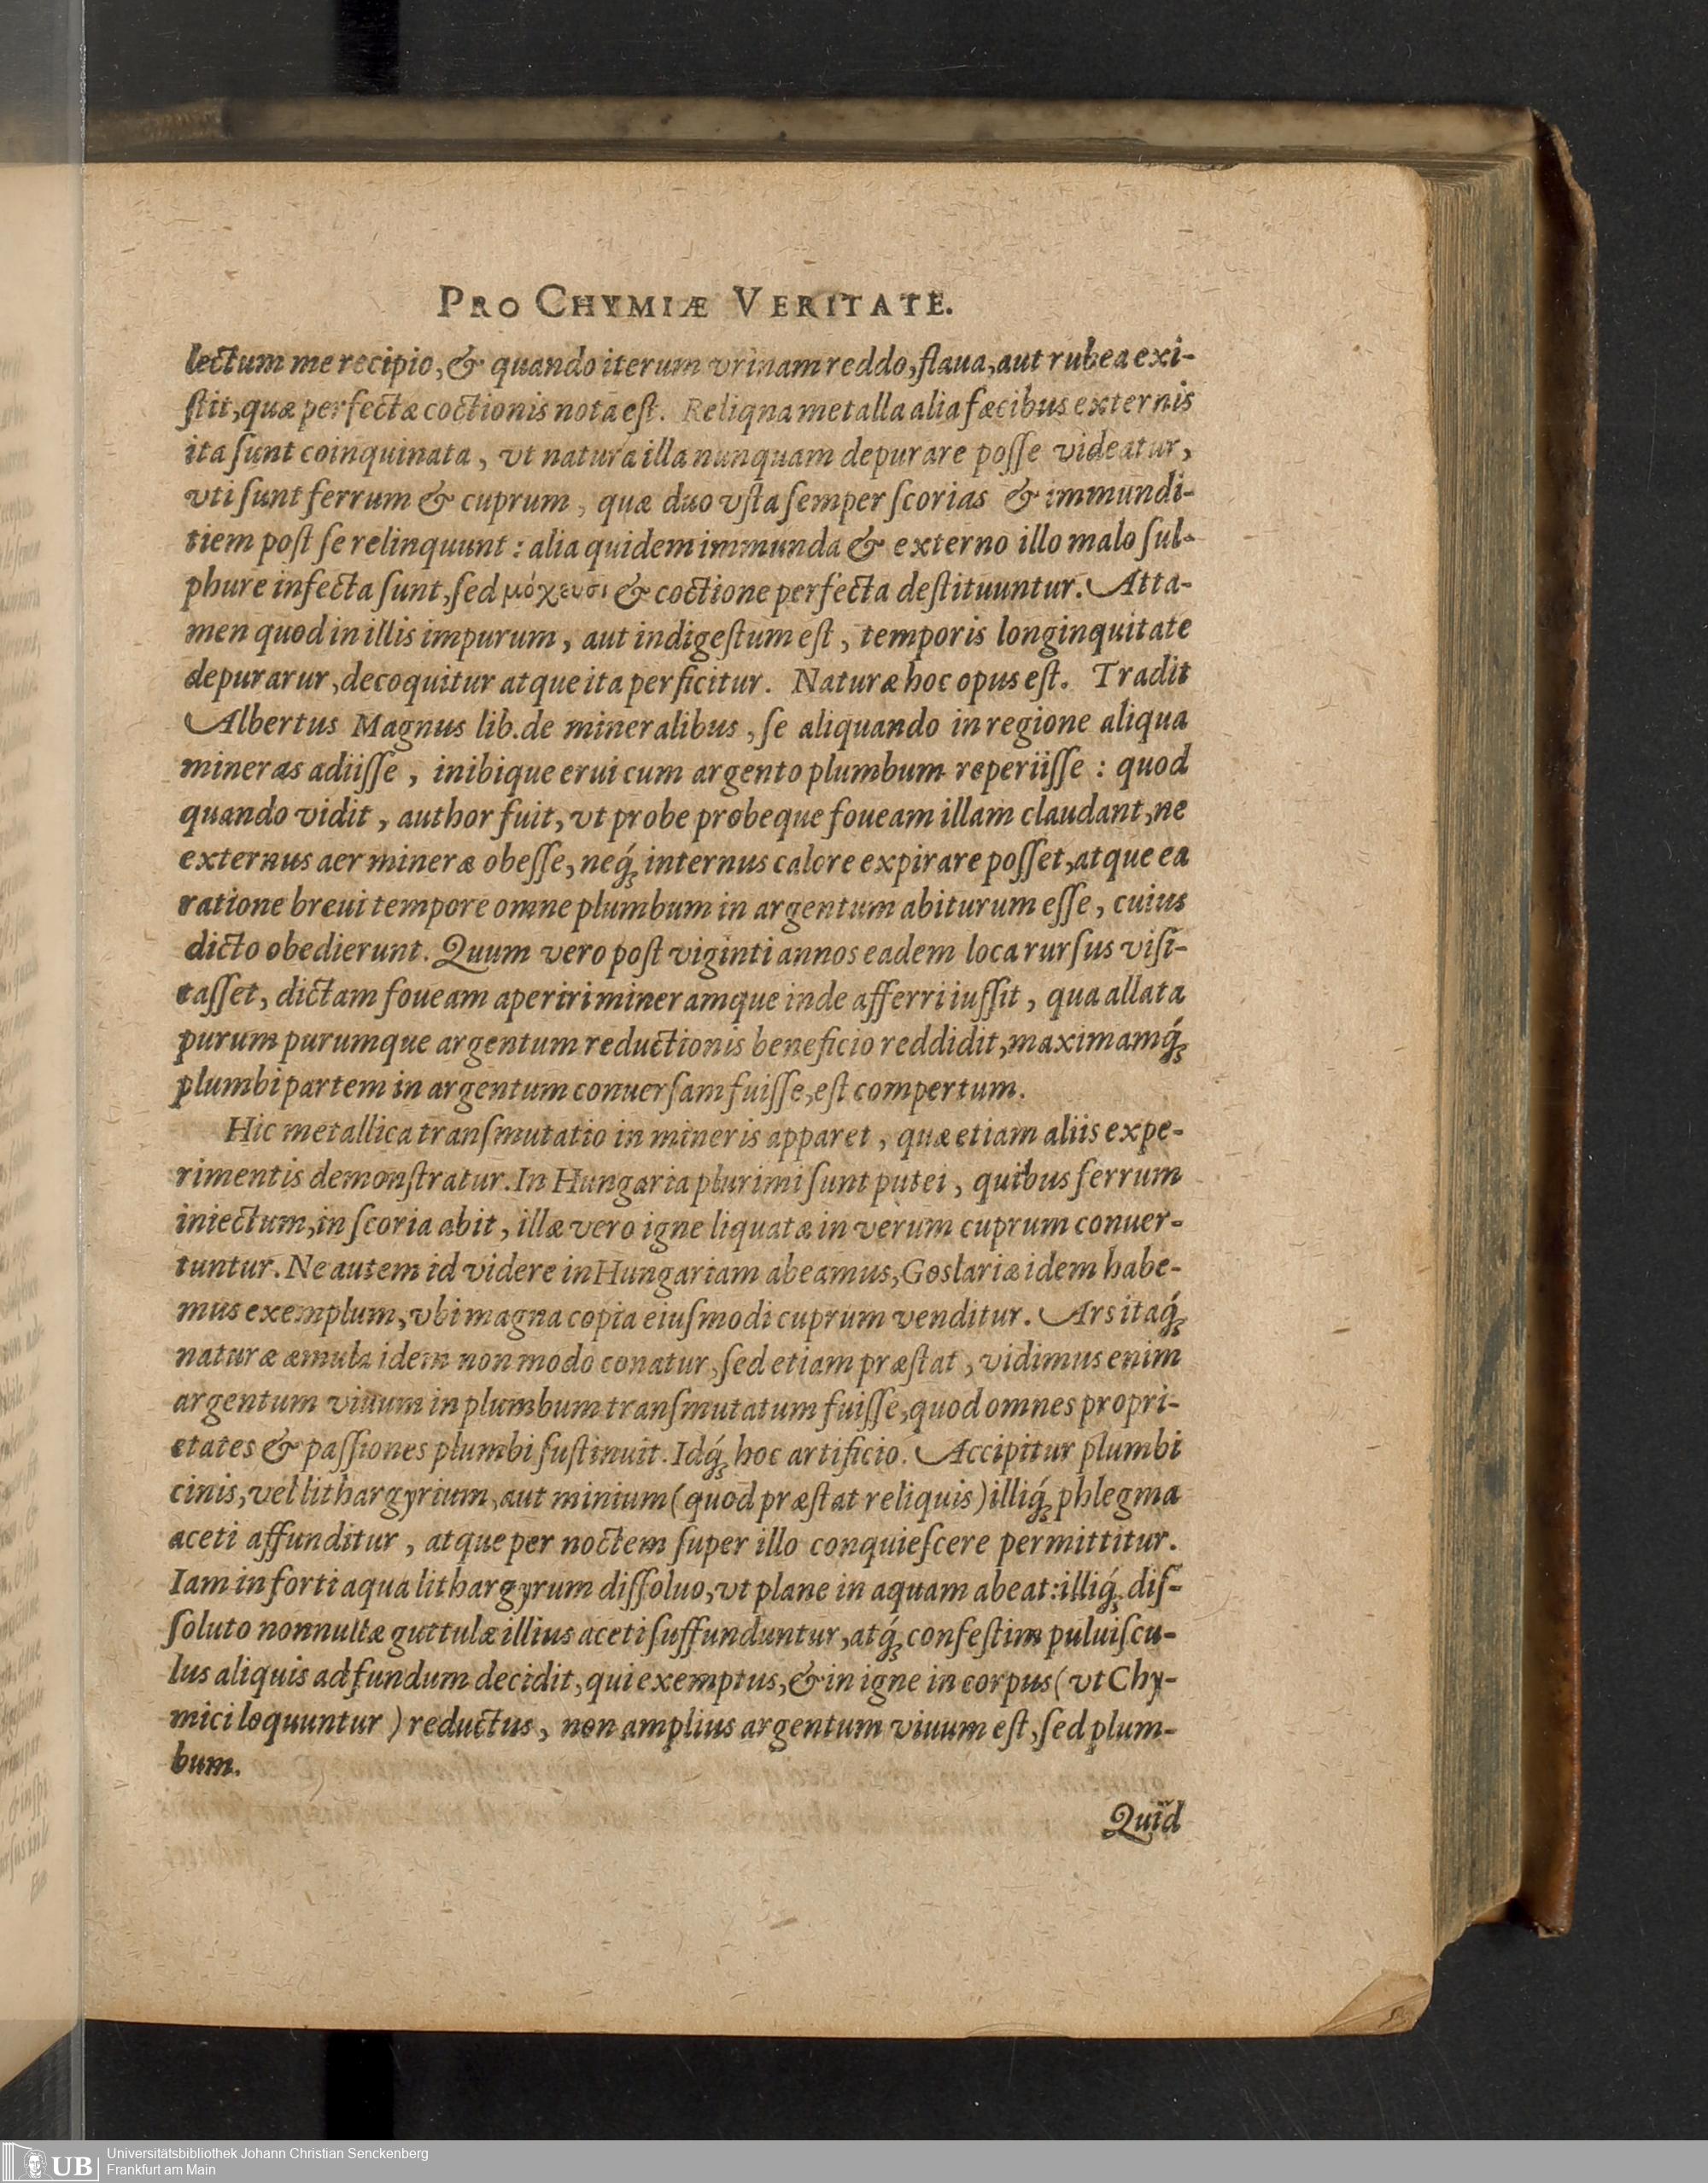 PRO CHYMIÆ VERITATE.
lectum me recipio, & quando iterum vrinam reddo, flaua, aut rubea exi-
ſtit, quæ perfectæ coctionis nota est. Reliqna metalla alia fæcibus externis
ita ſunt coinquinata, vt natura illa nunquam depurare poſſe videatur,
vti ſunt ferrum & cuprum, quæ duo vſta ſemper ſcorias & immundi-
tiem poſt ſe relinquunt: alia quidem immunda & externo illo malo ſul-
phure infecta ſunt, ſed μόχευσι & coctione perfecta deſtituuntur. Atta-
men quod in illis impurum, aut indigeſtum eſt, temporis longinquitate
depurarur, decoquitur atque ita perficitur. Naturæ hoc opus eſt. Tradit
Albertus Magnus lib. de mineralibus, ſe aliquando in regione aliqua
mineras adiiſſe, inibique erui cum argento plumbum reperiiſſe: quod
quando vidit, author fuit, vt probe probeque foueam illam claudant, ne
externus aer mineræ obeſſe, neq́ꝫ internus calore expirare poſſet, atque ea
ratione breui tempore omne plumbum in argentum abiturum eſſe, cuius
dicto obedierunt. Quum vero poſt viginti annos eadem loca rurſus viſi-
taſſet, dictam foueam aperiri mineramque inde afferri iuſſit, qua allata
purum purumque argentum reductionis beneficio reddidit, maximamq́ꝫ
plumbi partem in argentum conuerſam fuiſſe, eſt compertum.
Hic metallica tranſmutatio in mineris apparet, quæ etiam aliis expe-
rimentis demonſtratur. In Hungaria plurimi ſunt putei, quibus ferrum
iniectum, in ſcoria abit, illæ vero igne liquatæ in verum cuprum conuer-
tuntur. Ne autem id videre in Hungariam abeamus, Goslariæ idem habe-
mus exemplum, vbi magna copia eiuſmodi cuprum venditur. Ars itaq́ꝫ
naturæ æmula idem non modo conatur, ſed etiam præſtat, vidimus enim
argentum viuum in plumbum tranſmutatum fuiſſe, quod omnes propri-
etates & paſſiones plumbi ſuſtinuit. Idq́ꝫ hoc artificio. Accipitur plumbi
cinis, vel lithargyrium, aut minium (quod præſtat reliquis) illiq́ꝫ phlegma
aceti affunditur, atque per noctem ſuper illo conquieſcere permittitur.
Iam in forti aqua lithargyrum diſſoluo, vt plane in aquam abeat: illiq́ꝫ diſ-
ſoluto nonnullæ guttulæ illius aceti ſuffunduntur, atq́ꝫ confeſtim puluiſcu-
lus aliquis ad fundum decidit, qui exemptus, & in igne in corpus (vt Chy-
mici loquuntur) reductus, non amplius argentum viuum eſt, ſed plum-
bum.
Quid
UB
Universitätsbibliothek Johann Christian Senckenberg
Frankfurt am Main